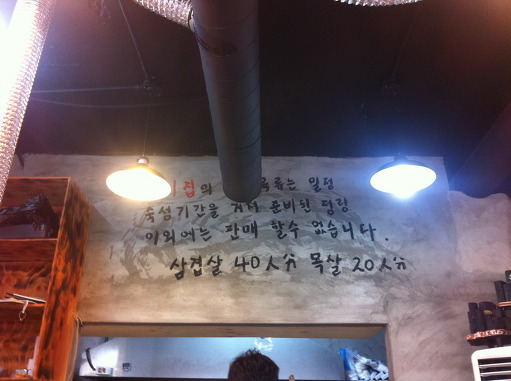 겹의 육류는 일정
숙성기간을 거쳐 준비된 정량
이외에는 판매 할수 없습니다.
삼겹살 40人分 목살 20人分